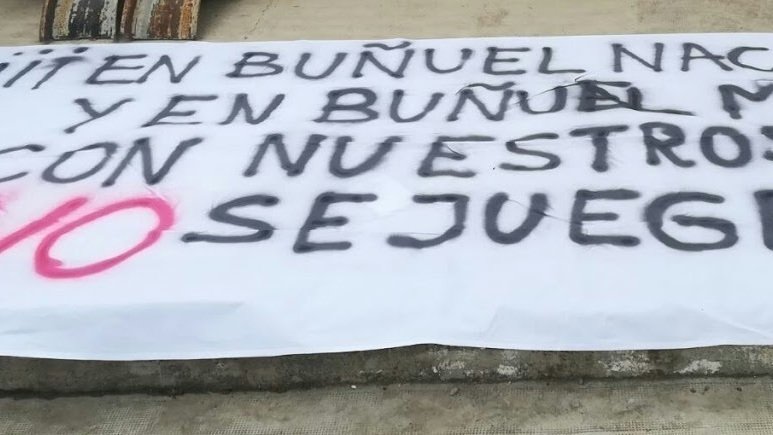 ¡¡¡EN BUÑUEL NAC
Y EN BUÑUEL M
CON NUESTROS
NO SE JUEG